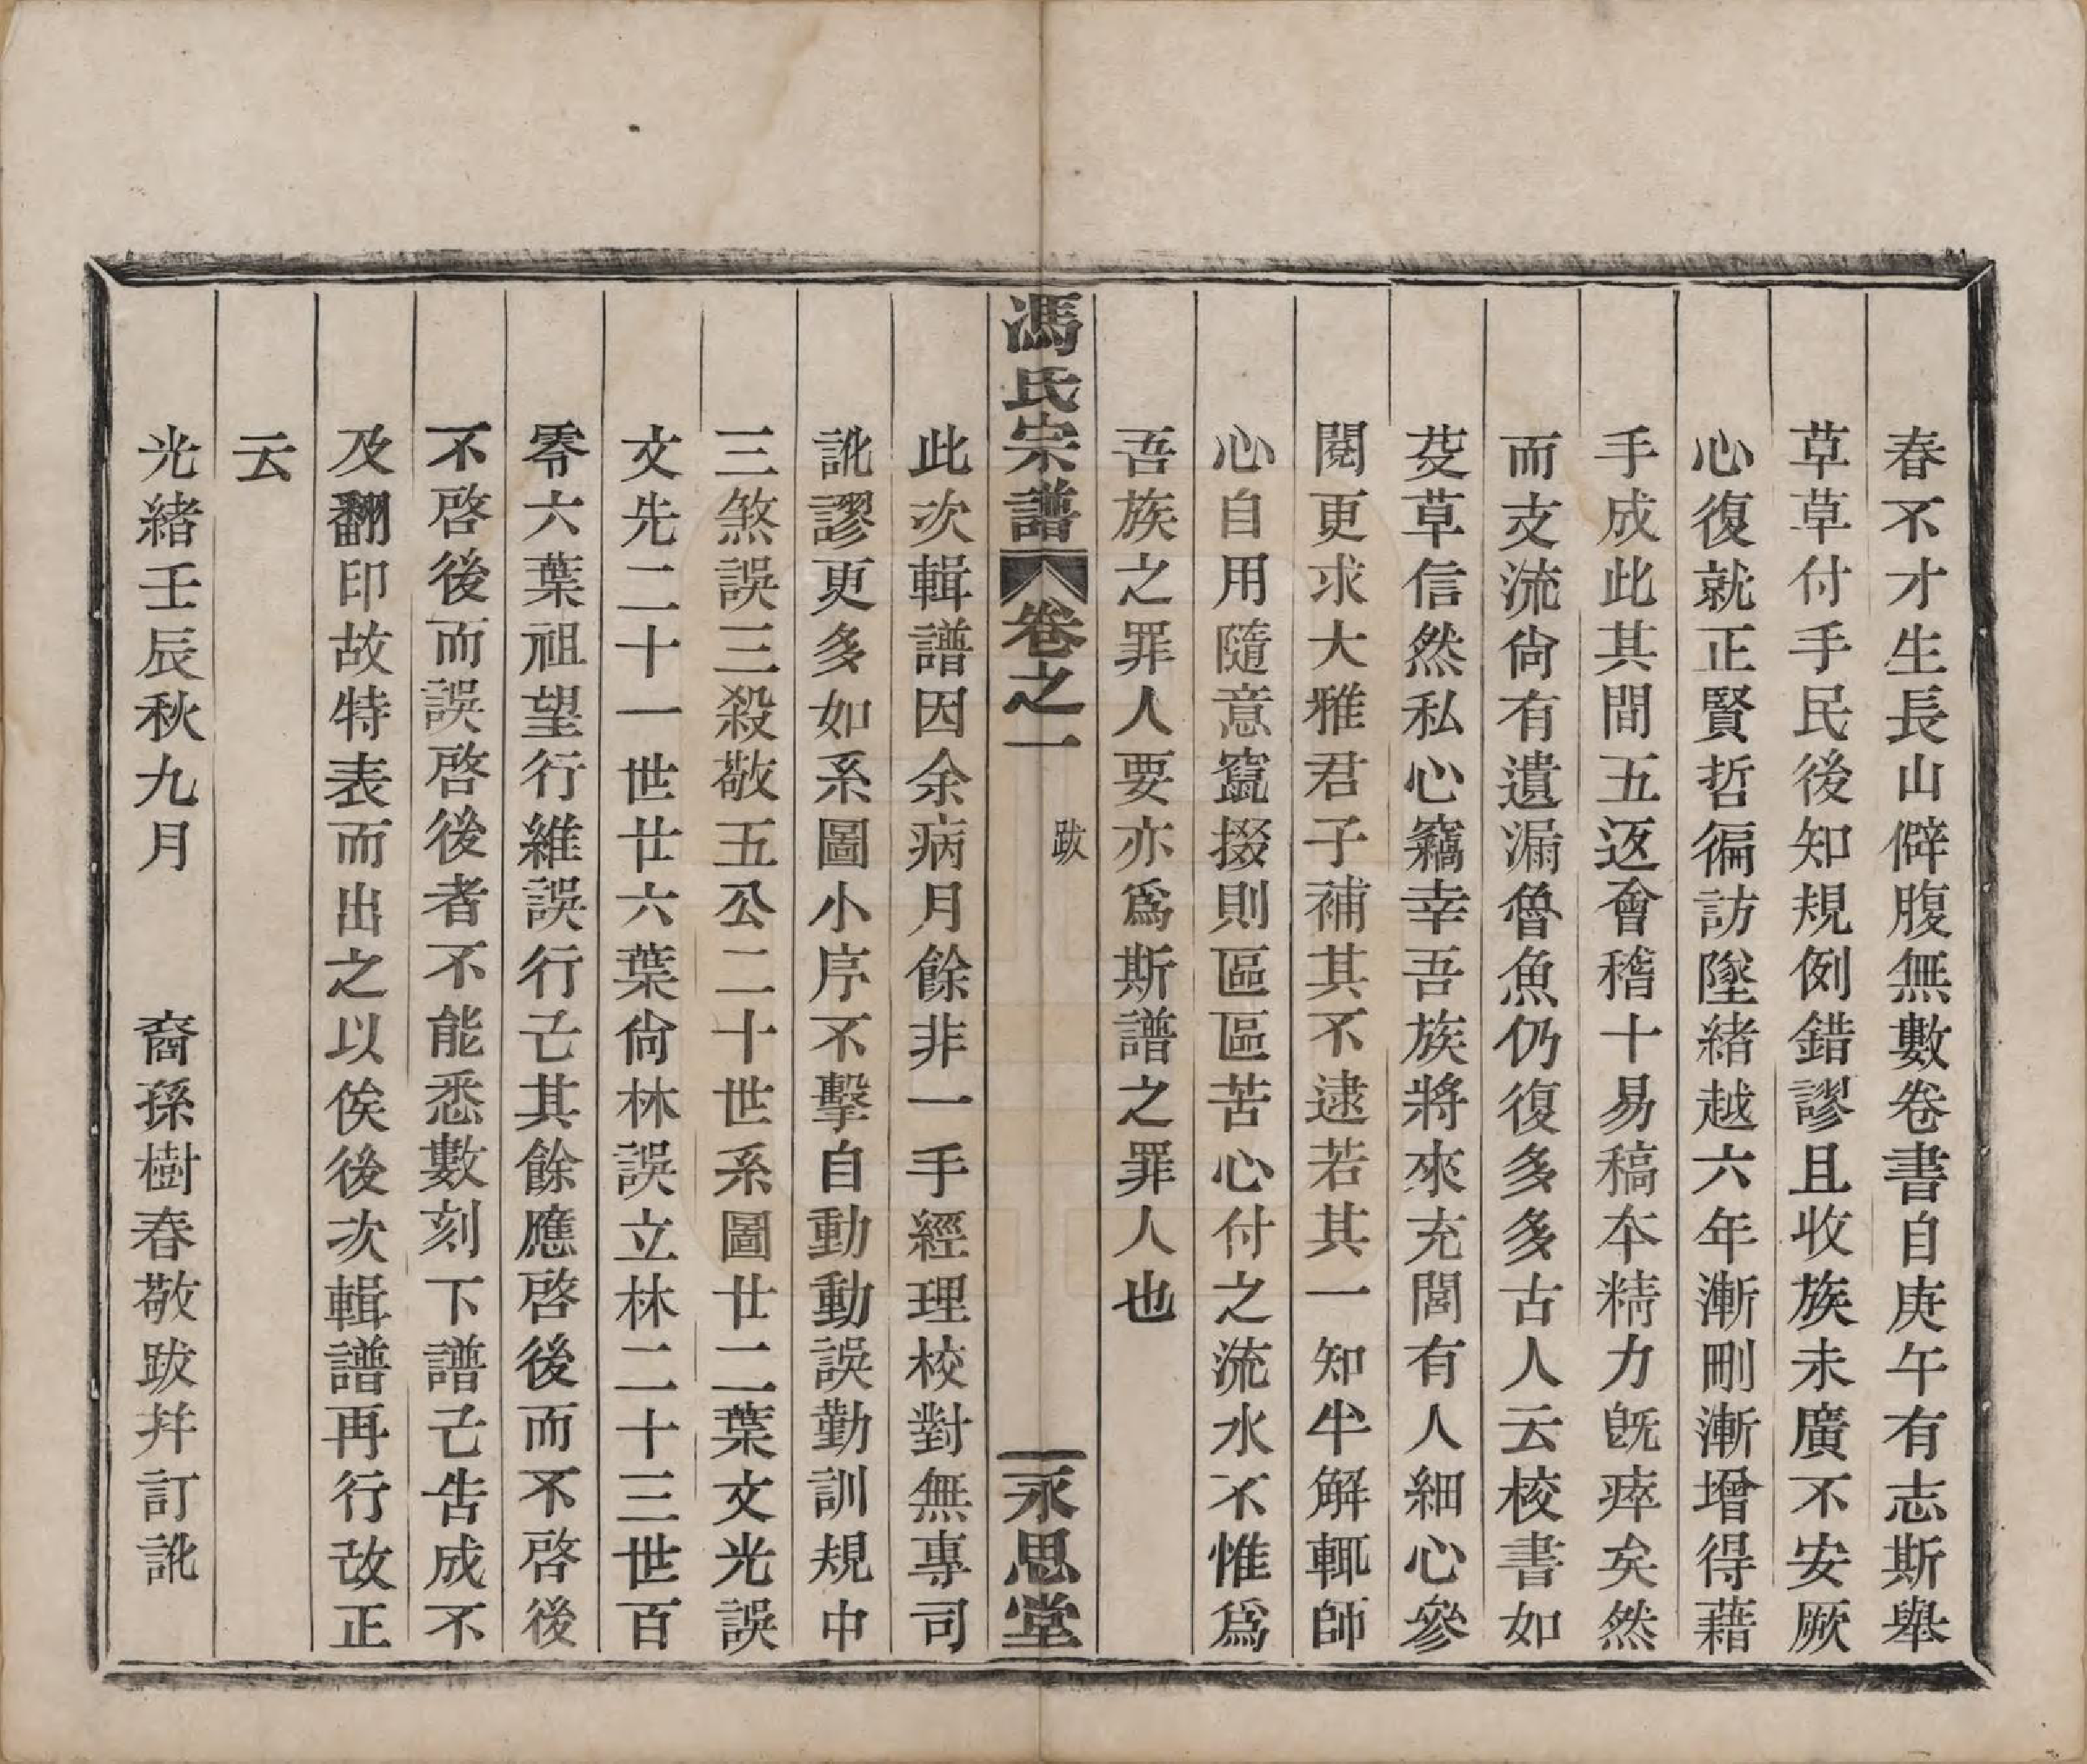 春不才生長山僻腹無數卷書自庚午有志斯舉
草草付手民後知規例錯謬且收族未廣不安厥
心復就正賢哲徧訪墜緒越六年漸刪漸增得藉
手成此其間五返會稽十易稿本精力旣瘁矣然
而支流尙有遺漏魯魚仍復多多古人云校書如
芟草信然私心竊幸吾族將來充閭有人細心參
閱更求大雅君子補其不逮若其一知半解輒師
心自用隨意竄掇則區區苦心付之流水不惟爲
吾族之罪人要亦爲斯譜之罪人也
馮氏宗譜 卷之一 跋 永思堂
此次輯譜因余病月餘非一手經理校對無專司
訛謬更多如系圖小序不擊自動動誤勤訓規中
三煞誤三殺敬五公二十世系圖廿二葉文光誤
文先二十一世廿六葉尙林誤立林二十三世百
零六葉祖望行維誤行己其餘應啓後而不啓後
不啓後而誤啓後者不能悉數刻下譜己告成不
及翻印故特表而出之以俟後次輯譜再行改正
云
光緒壬辰秋九月 裔孫樹春敬跋幷訂訛